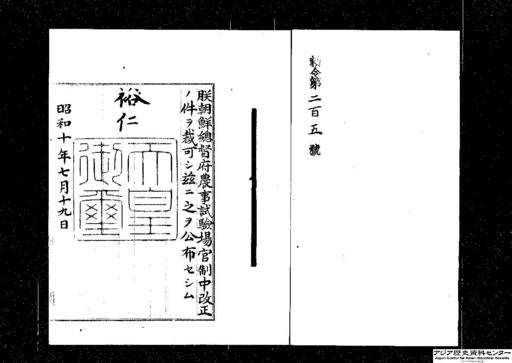 勅令第二百五號
朕朝鮮總督府農事試驗場官制中改正
ノ件ヲ裁可シ茲ニ之ヲ公布セシム
裕仁
天皇御璽
昭和十年七月十九日
アジア歴史資料センター
Japan Center for Asian Historical Records